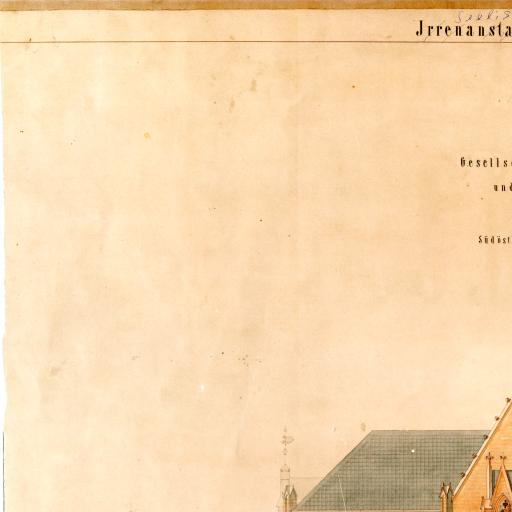 Jrrenansta
Gesells
und
Südöst